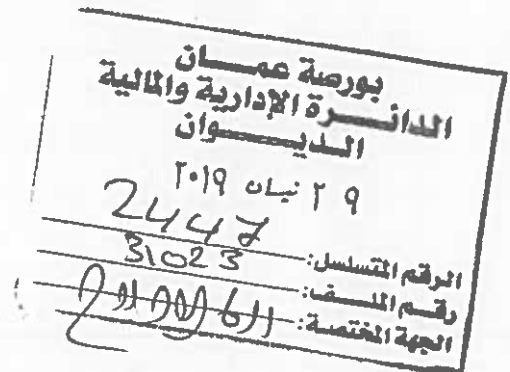 بورصة عمـــان
الدائـــرة الإدارية والمالية
الديـــوان
٢٩ نيسان ٢٠١٩
الرقم المتسلسل: 2447
رقم الملف: 31023
الجهة المختصة: